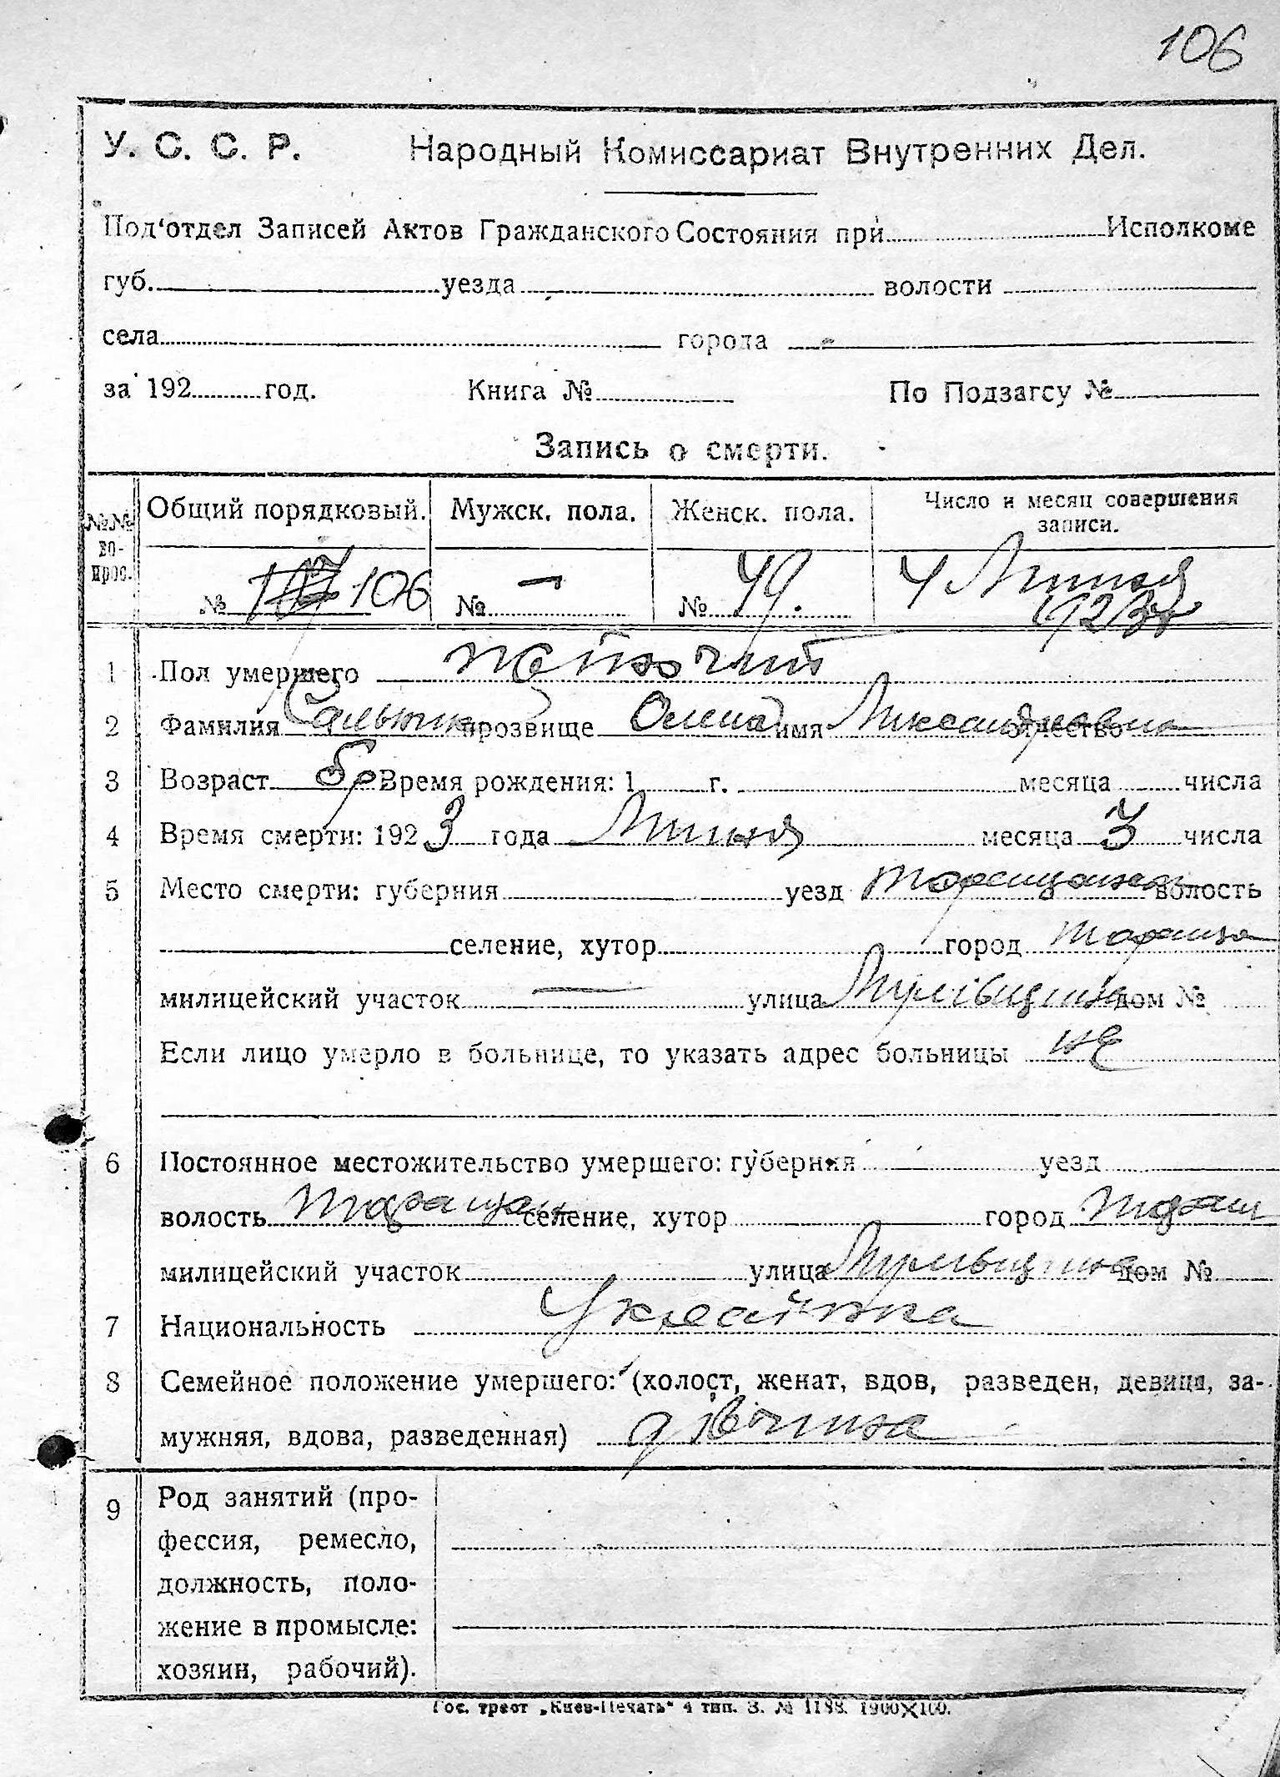 106
У. С. С. Р. Народный Комиссариат Внутренних Дел.
Под'отдел Записей Актов Гражданского Состояния при Исполкоме
губ. уезда волости
села города
за 192 год. Книга № По Подзагсу №
Запись о смерти.
№№ во-прос. Общий порядковый. Мужск. пола. Женск. пола. Число и месяц совершения записи.
№ 106 № — № 49. 4 Липня 1923 г
1 Пол умершего жіночий
2 Фамилия прозвище Олена имя Лиександровна отчество
3 Возраст 6 р Время рождения: 1 г. месяца числа
4 Время смерти: 1923 года Липня месяца 3 числа
5 Место смерти: губерния уезд Таращанск волость
селение, хутор город Тараща
милицейский участок — улица дом №
Если лицо умерло в больнице, то указать адрес больницы не
6 Постоянное местожительство умершего: губерния уезд
волость Таращан селение, хутор город Таращ
милицейский участок улица дом №
7 Национальность Украінка
8 Семейное положение умершего: (холост, женат, вдов, разведен, девица, за-
мужняя, вдова, разведенная) дівчина
9 Род занятий (про-
фессия, ремесло,
должность, поло-
жение в промысле:
хозяин, рабочий).
Гос. трест „Киев-Печать" 4 тип. З. № 1188. 1900×100.